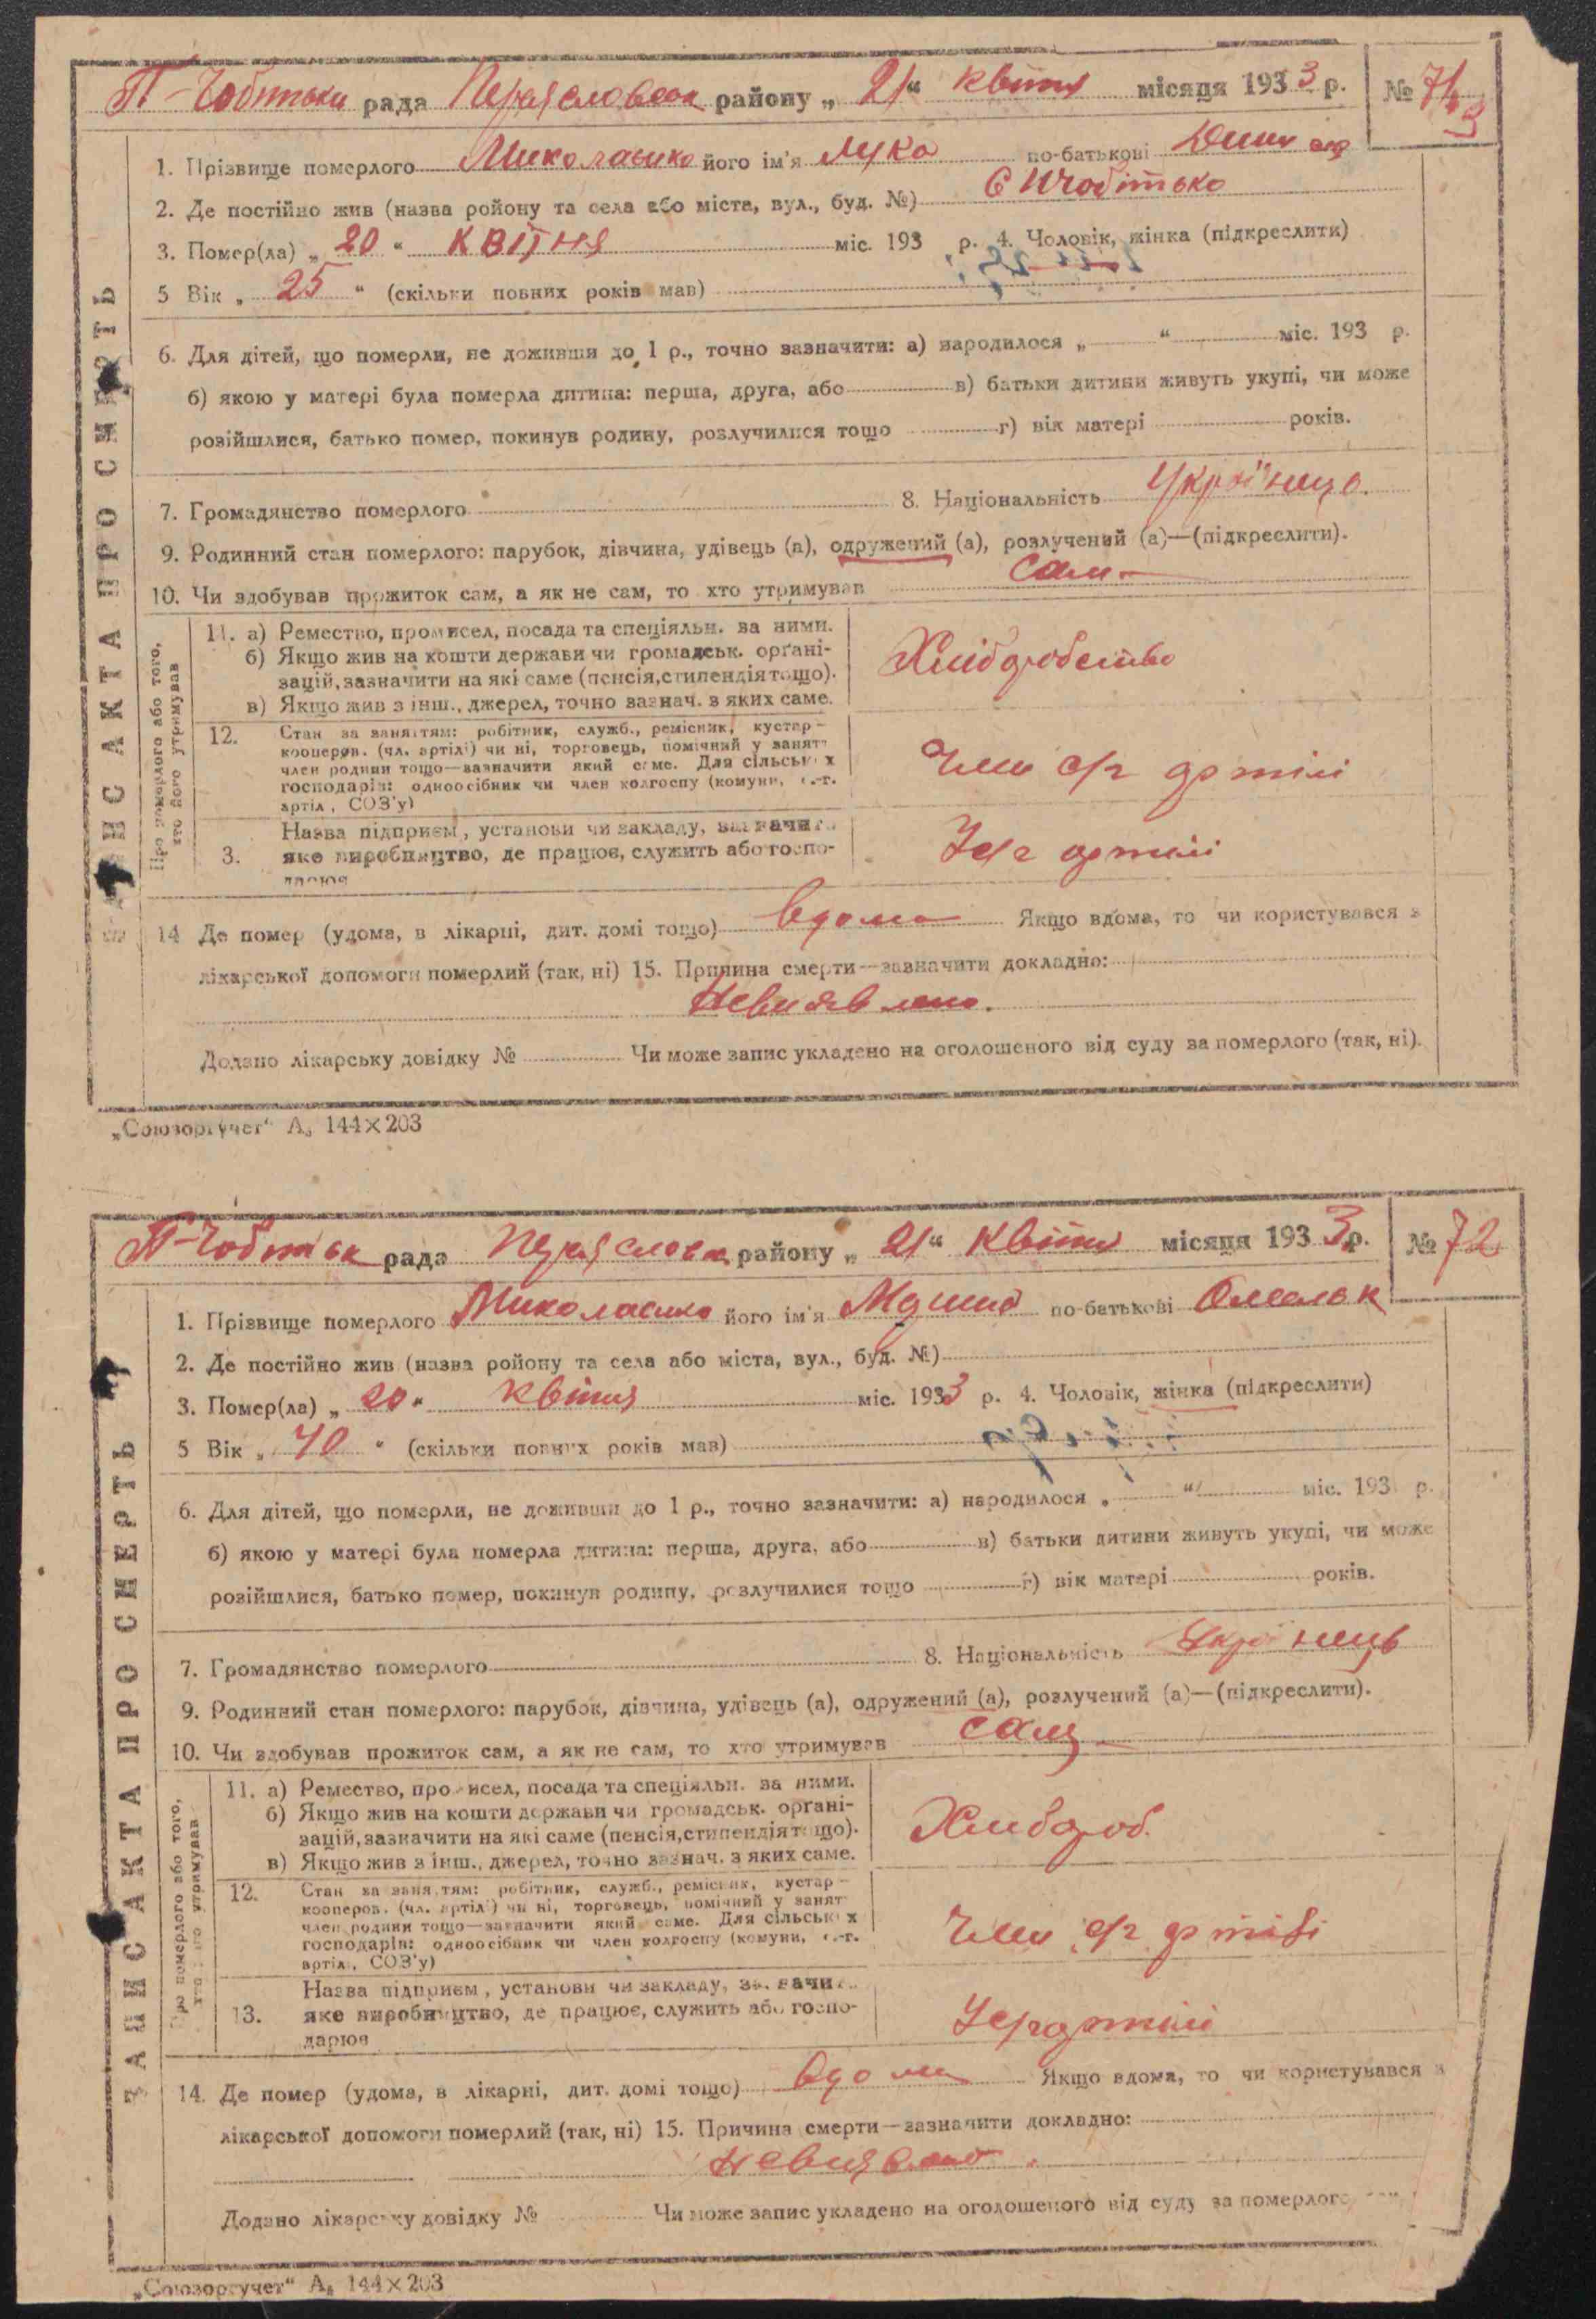 П-Чобітьки рада Переяславськ району „ 21 “ квітня місяця 1933 р. № 71
1. Прізвище померлого Миколаєнко його ім'я Лука по-батькові
2. Де постійно жив (назва ройону та села або міста, вул., буд. №)
3. Помер(ла) „ 20 “ квітня міс. 193 р. 4. Чоловік, жінка (підкреслити)
5 Вік „ 25 “ (скільки повних років мав)
6. Для дітей, що померли, не доживши до 1 р., точно зазначити: а) народилося „ “ міс. 193 р.
б) якою у матері була померла дитина: перша, друга, або в) батьки дитини живуть укупі, чи може
розійшлися, батько помер, покинув родину, розлучилися тощо г) вік матері років.
7. Громадянство померлого 8. Національність Українец.
9. Родинний стан померлого: парубок, дівчина, удівець (а), одружений (а), розлучений (а)—(підкреслити).
10. Чи здобував прожиток сам, а як не сам, то хто утримував сам
ЗАПИС АКТА ПРО СМЕРТЬ
Про померлого або того, хто його утримував
11. а) Ремество, промисел, посада та спеціяльн. за ними.
б) Якщо жив на кошти держави чи громадськ. орґані-
зацій, зазначити на які саме (пенсія, стипендія тощо).
в) Якщо жив з інш., джерел, точно зазнач. з яких саме.
Хліборобство
12. Стан за заняттям: робітник, служб., ремісник, кустар-
кооперов. (чл. артілі) чи ні, торговець, помічний у занят
член родини тощо—зазначити який саме. Для сільських
господарів: одноосібник чи член колгоспу (комуни, с.-г.
артіл, СОЗ'у)
Член с/г артілі
3. Назва підприєм, установи чи закладу, зазначити
яке виробництво, де працює, служить або госпо-
дарює
У с/г артілі
14 Де помер (удома, в лікарні, дит. домі тощо) вдома Якщо вдома, то чи користувався з
лікарської допомоги померлий (так, ні) 15. Причина смерти—зазначити докладно:
Невиявлено.
Додано лікарську довідку № Чи може запис укладено на оголошеного від суду за померлого (так, ні).
„Союзоргучет“ А₅ 144×203
П-Чобітьк рада Переяславськ району „ 21 “ квітня місяця 1933 р. № 72
1. Прізвище померлого Миколаєнко його ім'я по-батькові Омельк
2. Де постійно жив (назва ройону та села або міста, вул., буд. №)
3. Помер(ла) „ 20 “ квітня міс. 1933 р. 4. Чоловік, жінка (підкреслити)
5 Вік „ 40 “ (скільки повних років мав)
6. Для дітей, що померли, не доживши до 1 р., точно зазначити: а) народилося „ “ міс. 193 р.
б) якою у матері була померла дитина: перша, друга, або в) батьки дитини живуть укупі, чи може
розійшлися, батько помер, покинув родину, розлучилися тощо г) вік матері років.
7. Громадянство померлого 8. Національність Українець
9. Родинний стан померлого: парубок, дівчина, удівець (а), одружений (а), розлучений (а)—(підкреслити).
10. Чи здобував прожиток сам, а як не сам, то хто утримував сам
ЗАПИС АКТА ПРО СМЕРТЬ
Про померлого або того, хто його утримував
11. а) Ремество, промисел, посада та спеціяльн. за ними.
б) Якщо жив на кошти держави чи громадськ. орґані-
зацій, зазначити на які саме (пенсія, стипендія тощо).
в) Якщо жив з інш., джерел, точно зазнач. з яких саме.
Хлибороб.
12. Стан за заняттям: робітник, служб., ремісник, кустар-
кооперов. (чл. артілі) чи ні, торговець, помічний у занят
член родини тощо—зазначити який саме. Для сільських
господарів: одноосібник чи член колгоспу (комуни, с.-г.
артіл., СОЗ'у)
Член с/г артілі
13. Назва підприєм, установи чи закладу, зазначити
яке виробництво, де працює, служить або госпо-
дарює
У с/г артілі
14. Де помер (удома, в лікарні, дит. домі тощо) вдома Якщо вдома, то чи користувався з
лікарської допомоги померлий (так, ні) 15. Причина смерти—зазначити докладно:
невиявлено.
Додано лікарську довідку № Чи може запис укладено на оголошеного від суду за померлого
„Союзоргучет“ А₅ 144×203